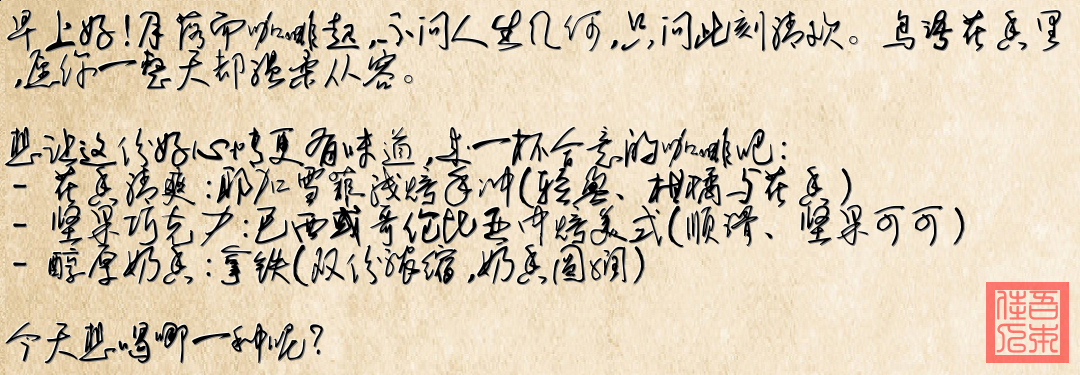 早上好!月落而咖啡起,不问人生几何,只问此刻清欢。鸟语花香里
,愿你一整天都温柔从容。
想让这份好心情更有味道,来一杯合意的咖啡吧:
- 花香清爽:耶加雪菲浅焙手冲(轻盈、柑橘与花香)
- 坚果巧克力:巴西或哥伦比亚中焙美式(顺滑、坚果可可)
- 醇厚奶香:拿铁(双份浓缩,奶香圆润)
今天想喝哪一种呢?